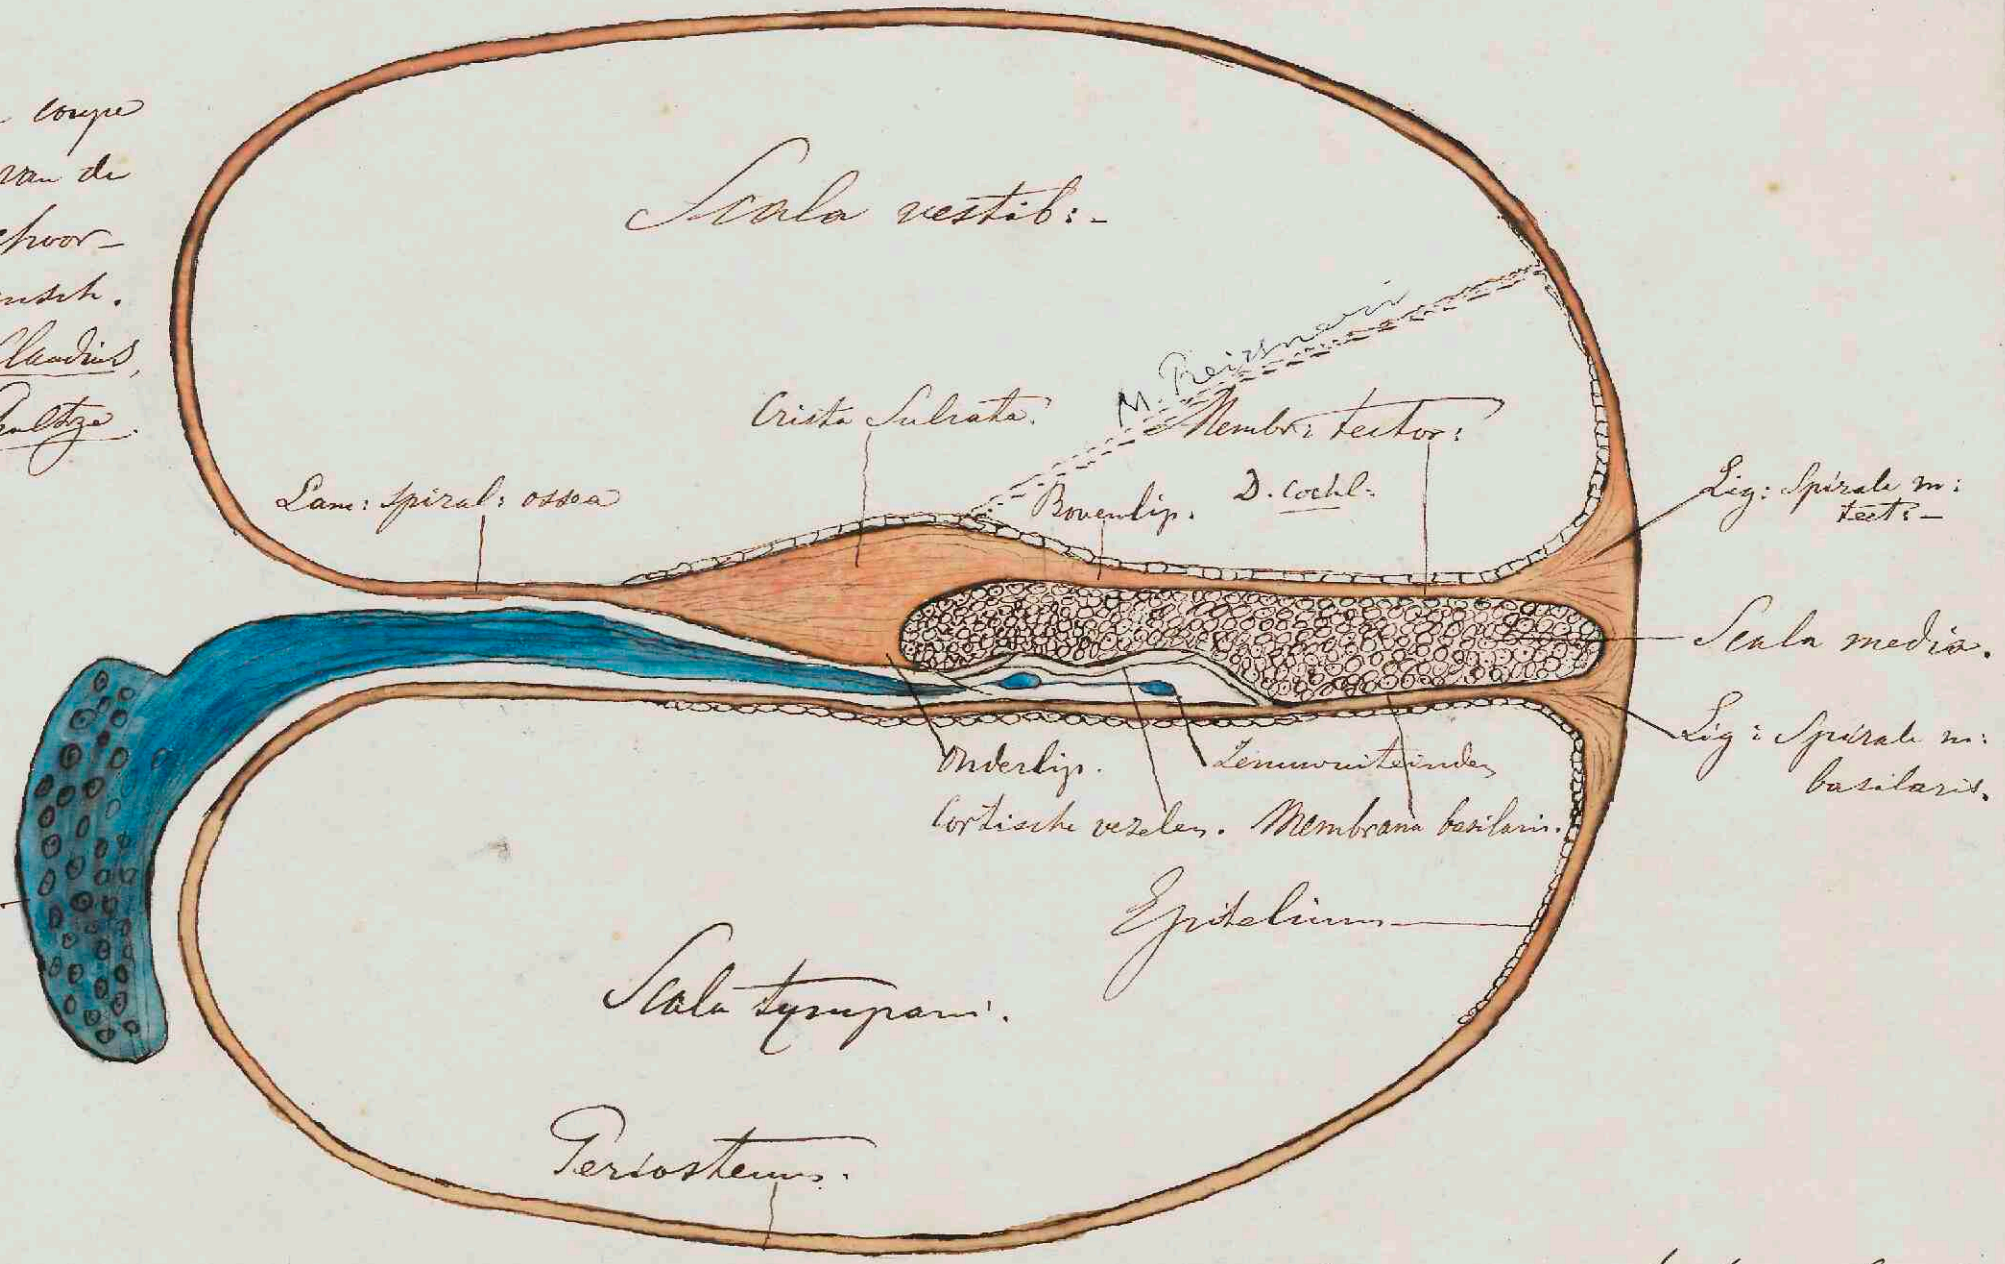 coupe
van de
Claudius,
Scala vestib:-
M. Reissneri
Crista Sulcata.
Membr: tector:
Lam: spiral: ossea
Bovenlip.
D. cochl:
Lig: Spirale m:
tect:-
Scala media.
Lig: Spirale m:
basilaris.
Onderlip.
Zenuwuiteinden
Cortische vezelen.
Membrana basilaris.
Epitelium
Scala tympani.
Periosteum.